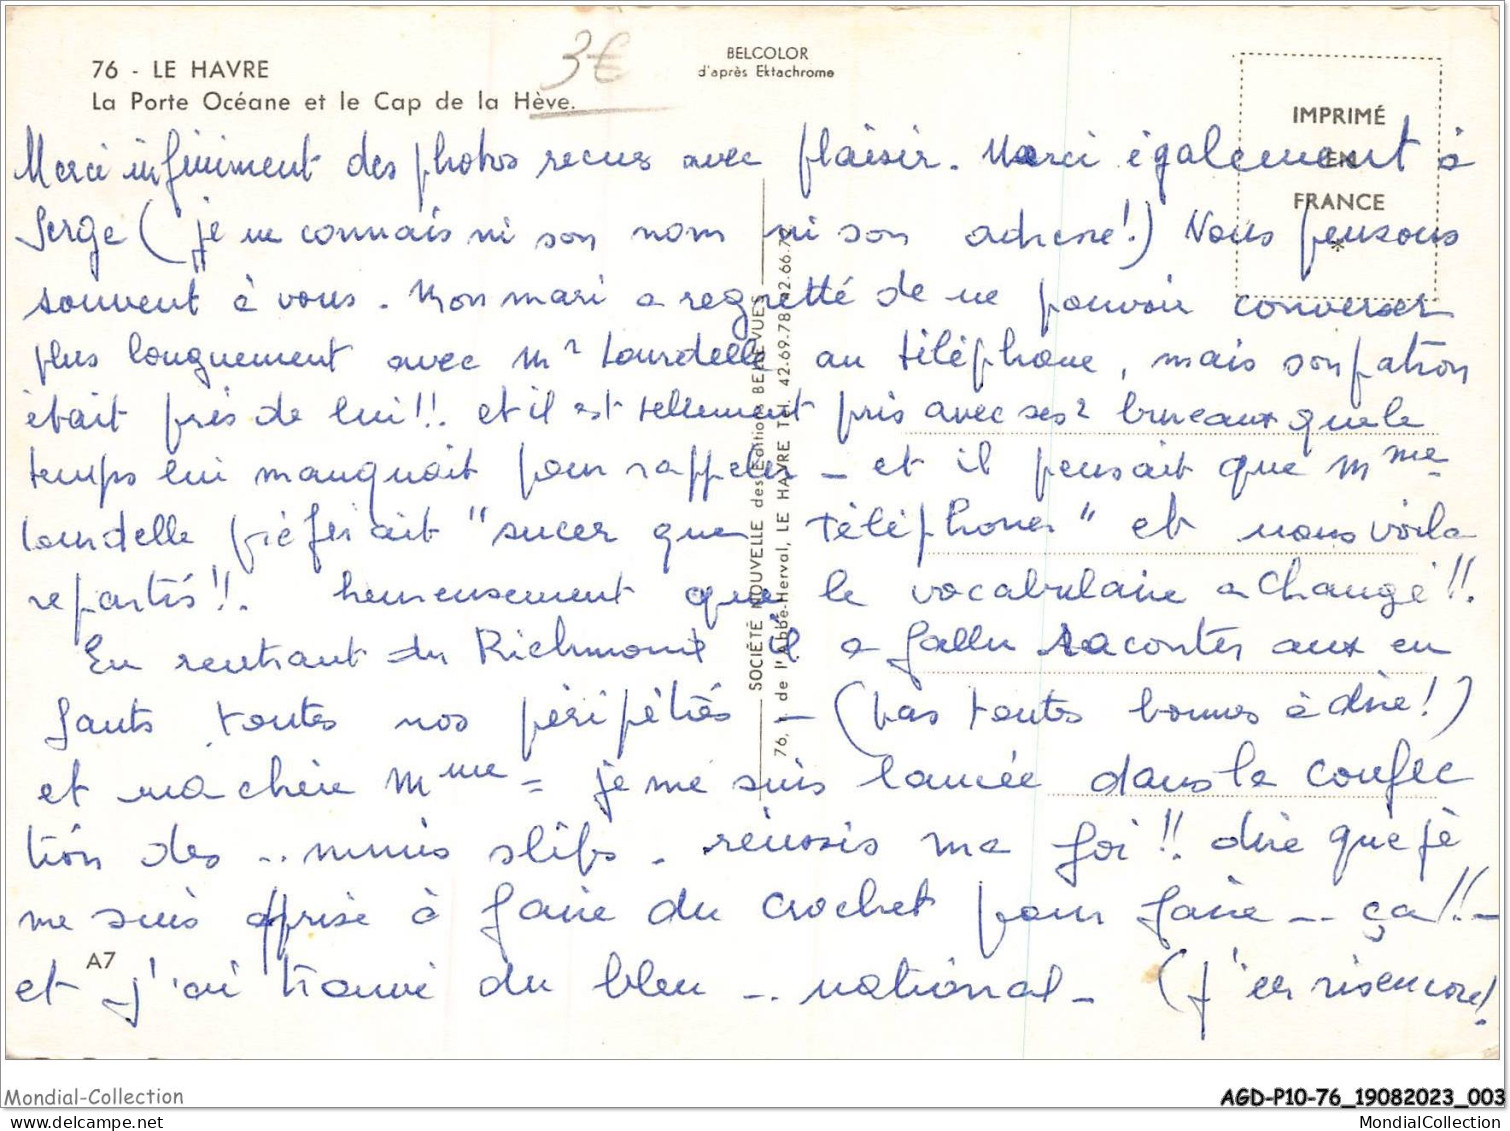 76 - LE HAVRE
La Porte Océane et le Cap de la Hève.
3€
BELCOLOR
d'après Ektachrome
IMPRIMÉ
EN
FRANCE
*
Merci infiniment des photos recues avec plaisir. Merci également à
Serge (je ne connais ni son nom ni son adresse!) Nous pensons
souvent à vous. Mon mari a regretté de ne pouvoir converser
plus longuement avec Mr Lourdelle au téléphone, mais son patron
était près de lui!! et il est tellement pris avec ses 2 bureaux que le
temps lui manquait pour rappeler - et il pensait que Mme
Lourdelle préférait "sucer que téléphoner" et nous voila
repartis!! heureusement que le vocabulaire a changé!!
En rentrant du Richmont il a fallu raconter aux en
fants toutes nos péripéties - (pas toutes bonnes à dire!)
et ma chère Mme = je me suis lancée dans la confec
tion des .. minis slips. réussis ma foi!! dire que je
me suis apprise à faire du crochet pour faire -- ça!! -
et j'ai trouvé du bleu -.. national - (j'en ris encore!
A7
SOCIÉTÉ NOUVELLE des Éditions BELLEVUES
de l'Abbé-Herval, LE HAVRE Tél. 42-69.78
Mondial-Collection
AGD-P10-76_19082023_003
MondialCollection